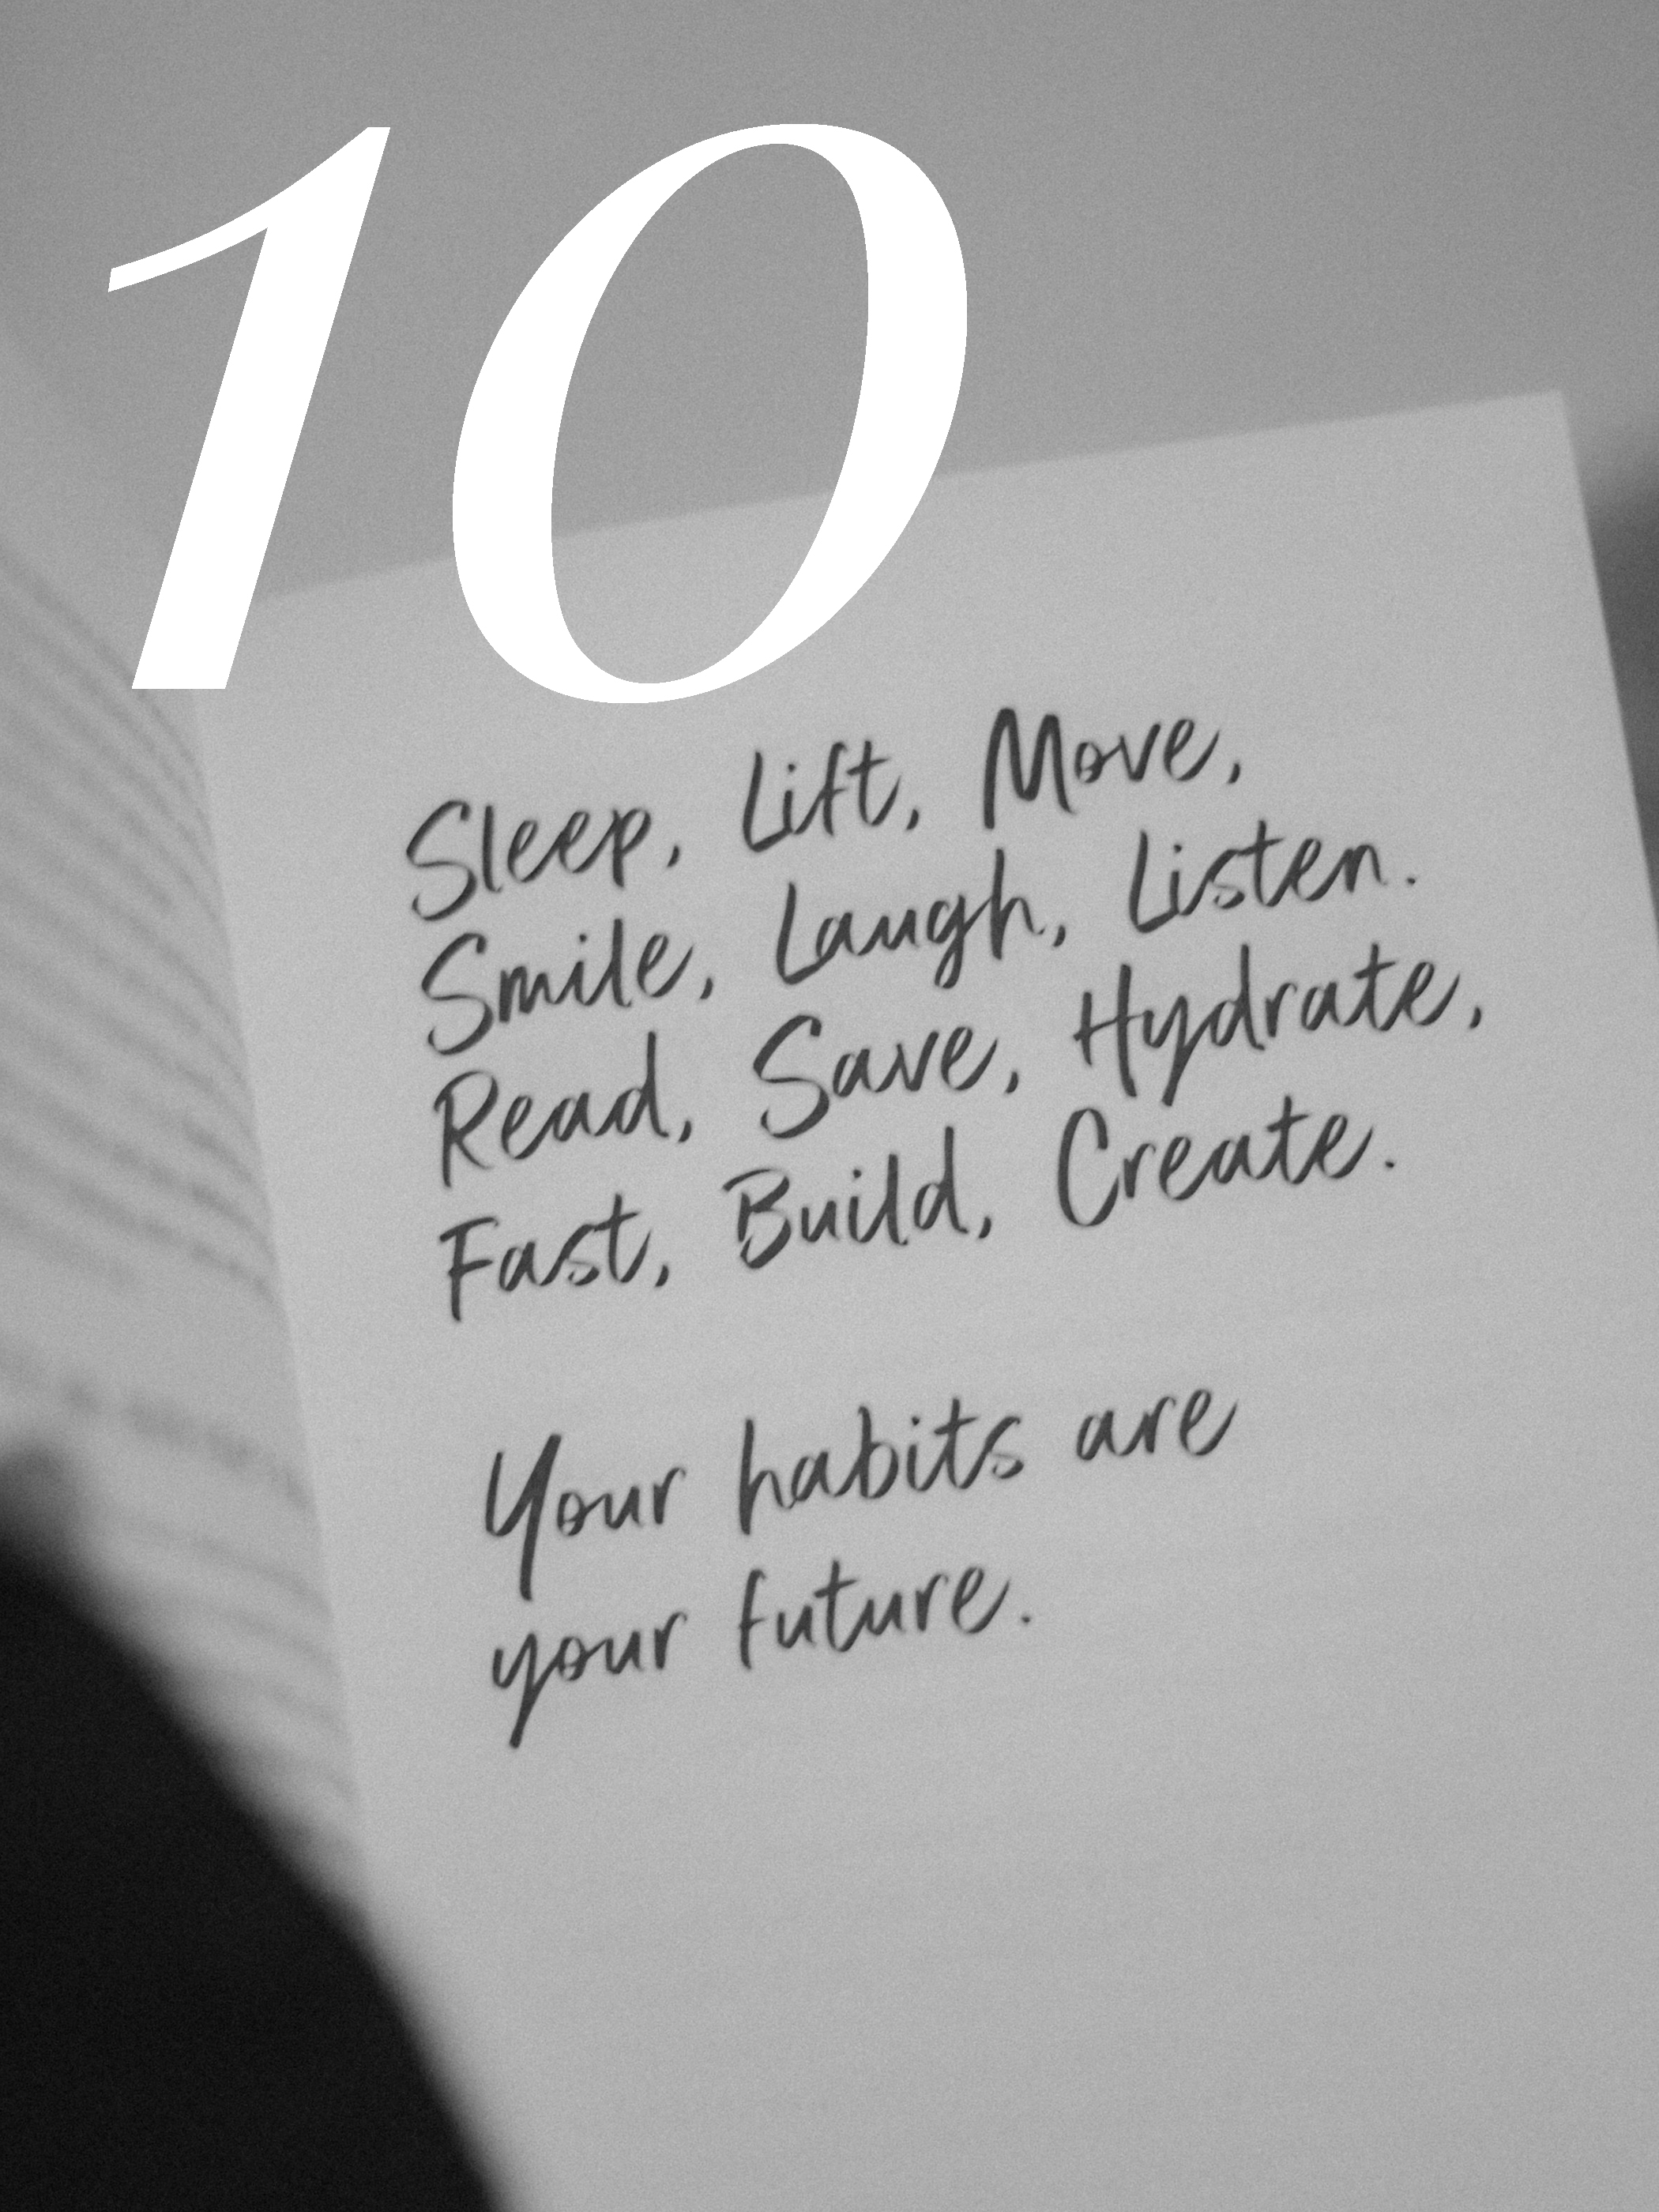 10
Sleep, Lift, Move,
Smile, Laugh, Listen.
Read, Save, Hydrate,
Fast, Build, Create.
Your habits are
your future.